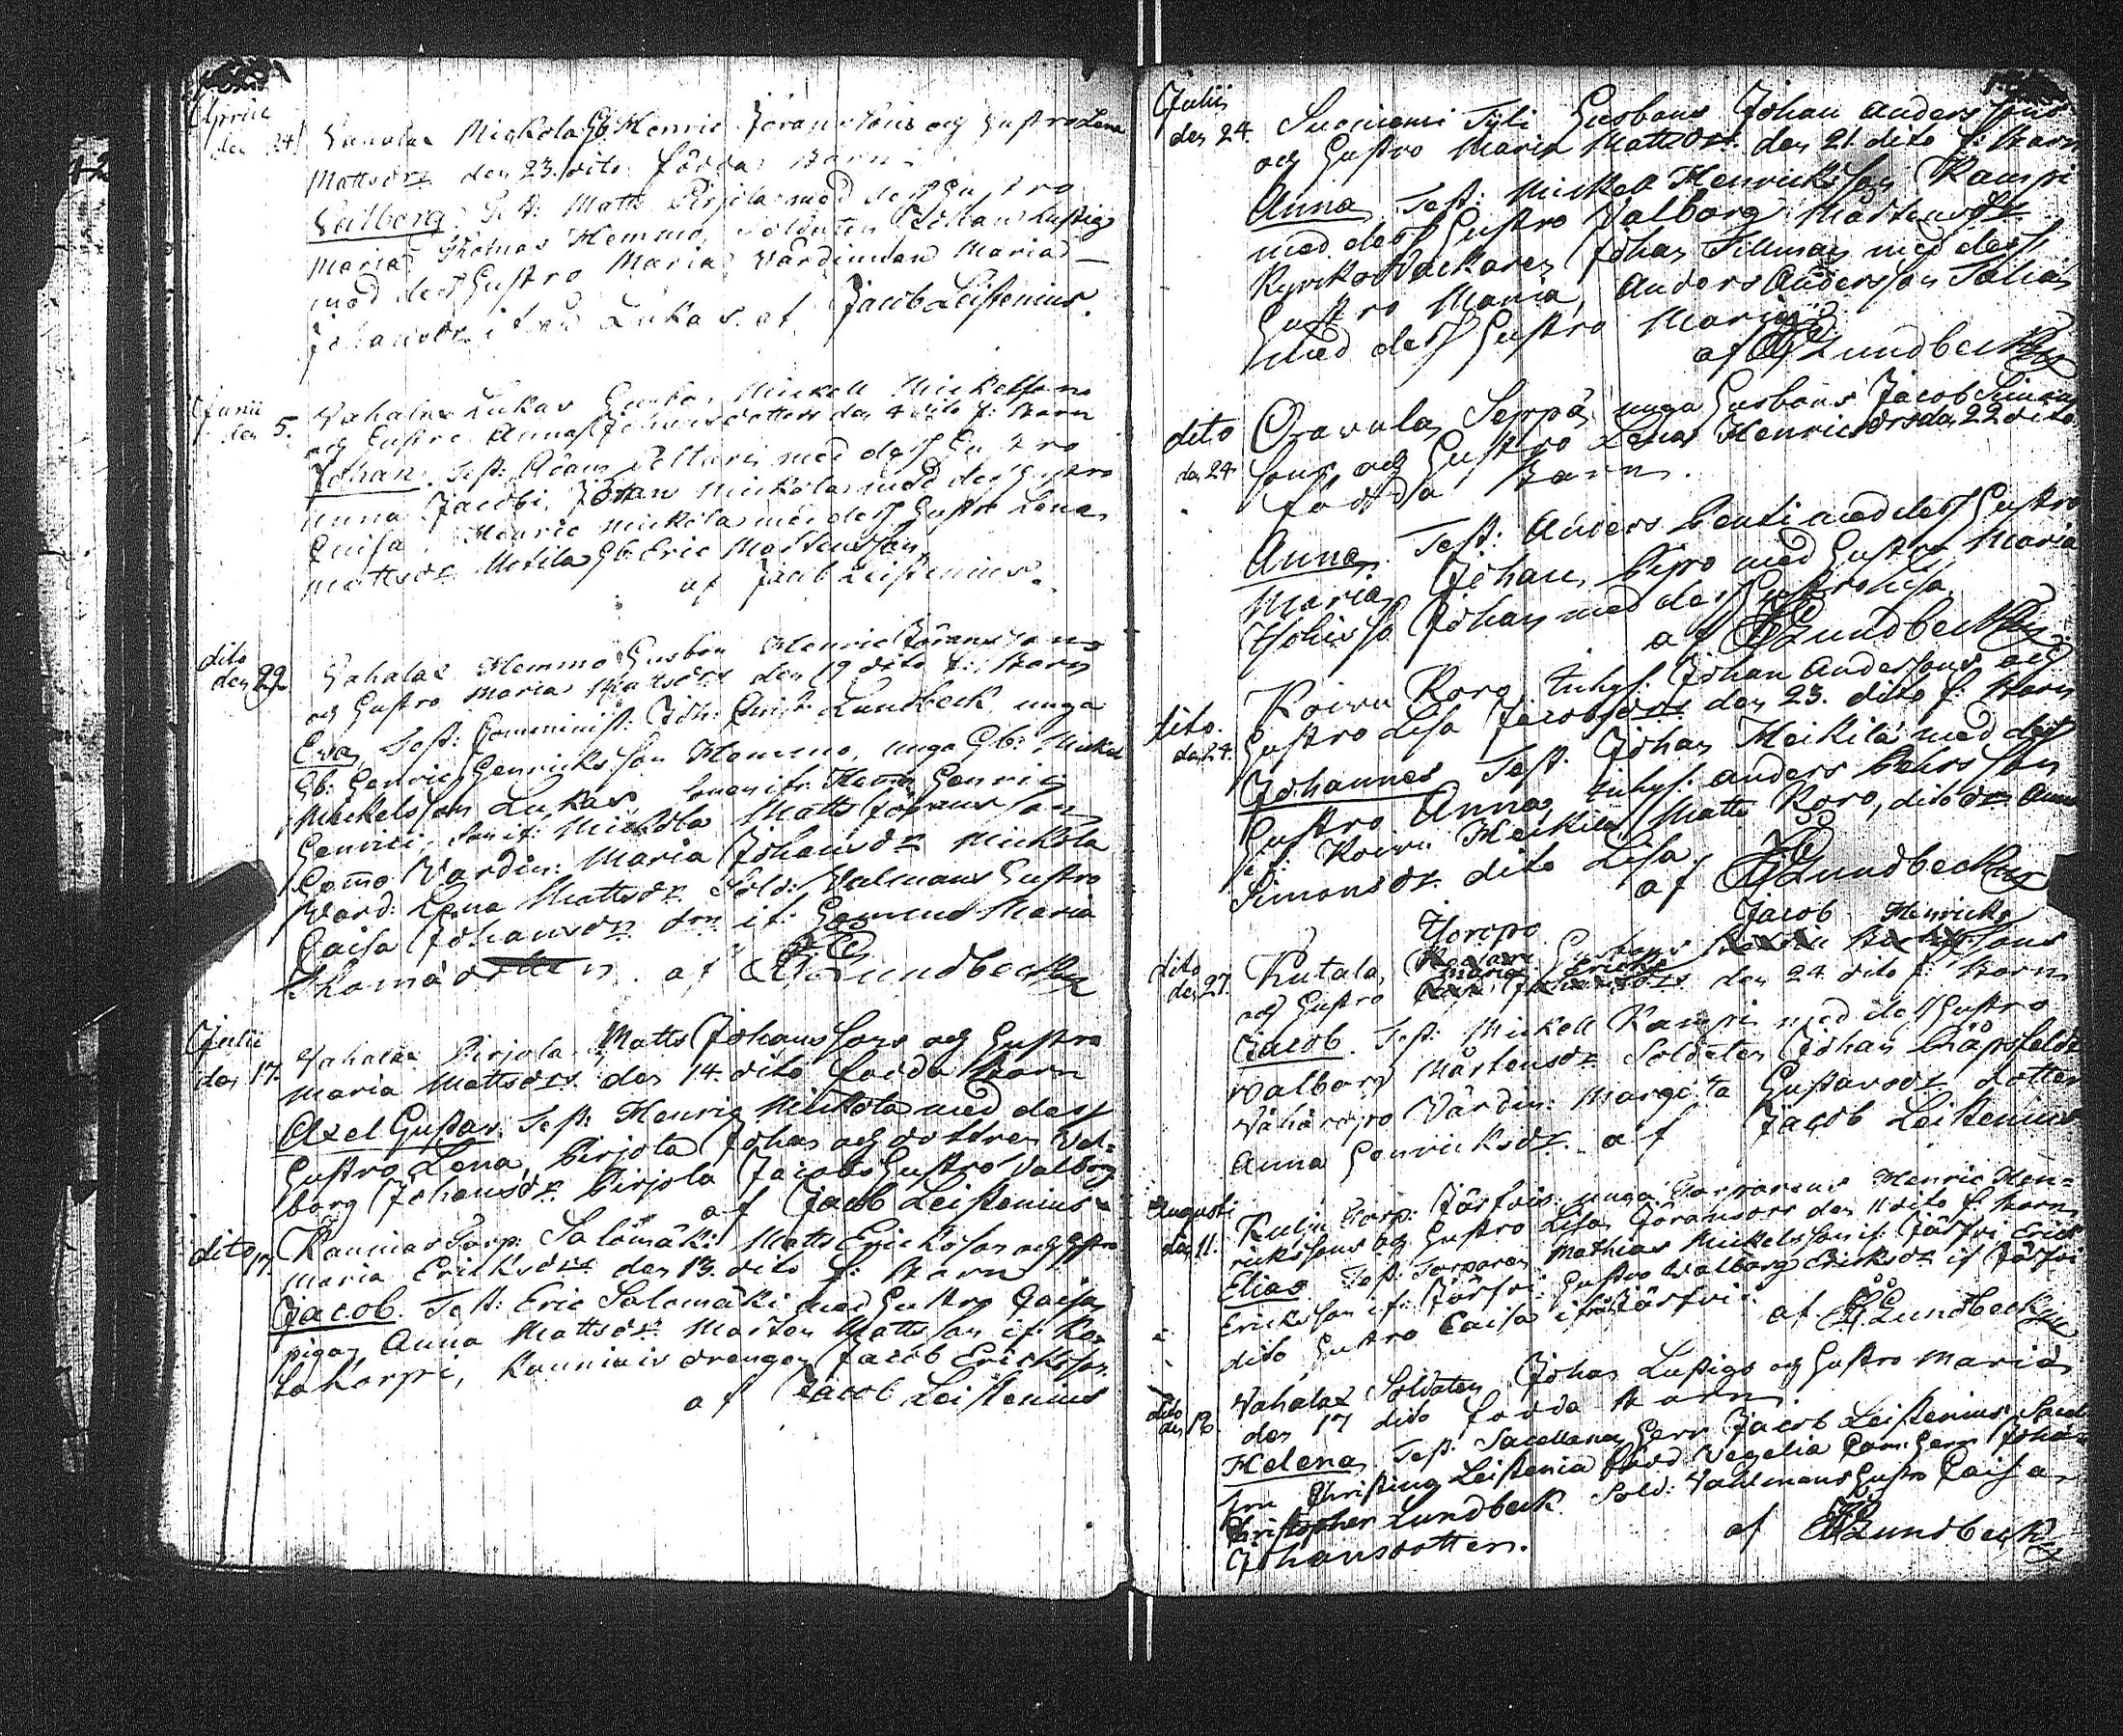 42
Aprili
den 24. Vahalax Mickola Gb. Henric Jöranssons och hustro Lena
Mattsdrs den 23. dito födda Barn
Valborg. Test: Matts Pirjola med dess hustro
Maria, Thomas Hemmo, Soldaten Johan Lustig
med dess hustro Maria, Värdinnan Maria
Johansdr. ifrån Lukas. af Jacob Leistenius.
Junii
den 5. Vahalax Lukas Gusbon Mickell Mickelssons
och hustro Anna Johansdotters den 4 dito f: Barn
Johan. Test: Adam Pelttari med dess hustro
Anna Jacobi, Jöran Mickola med dess hustro
Caisa, Henric Mickola med dess hustro Lena
Mattsdr. Mertila Gb. Eric Mårtensson
af Jacob Leistenius.
dito
den 22. Vahalax Hemmo Gusbon Henric Jöranssons
och hustro Maria Mattsdrs den 19 dito f: Barn
Eva, Test: Comminist: Joh: Christ: Lundbeck, unga
Gb: Henric Henricksson Hemmo, unga Gb: Mickel
Mickelsson Lukas, Henric
Henrici, Mickola Matts Jöransson
Hemmo Värdin: Maria Johansdr. Mickola
Värd: Lena Mattsdr. Sold: Valmans hustro
Caisa Johansdr. drn if: Hemmo Maria
Thomædotter. af JC Lundbeck
Julii
den 17. Vahalax Pirjola Matts Johanssons och hustro
Maria Mattsdrs den 14. dito födda Barn
Axel Gustav. Test: Henric Mickola med dess
hustro Lena, Pirjola Johan och dottren Val-
borg Johansdr. Pirjola Jacobs hustro Valborg
af Jacob Leistenius
dito 17. Kauniais Torp: Salomäki Matts Ericksson och hstro
Maria Ericksdrs den 13. dito f: Barn
Jacob. Test: Eric Salomäki med hustro Caisa
pigan Anna Mattsdr. Mårten Mattsson if: Ko-
takorpi, Kauniais drengen Jacob Ericksson.
af Jacob Leistenius
Julii
den 24. Suoniemi Tyli Gusbons Johan Anderssons
och hustro Maria Mattsdrs den 21. dito f: Barn
Anna Test: Mickell Henricksson Kampi
med dess hustro Valborg Mårtensdr.
Kyrkoväckaren Johan Tillman med dess
hustro Maria, Anders Andersson Talian
med dess hustro Maria
af JC Lundbeck
dito
den 24. Oravula Seppä unga Gusbons Jacob Simons
sons, och hustro Lena Henricsdrs den 22 dito
födda Barn.
Anna, Test: Anders Penti med dess hustro
Maria, Johan Pyro med hustro Maria
Johan med dess hustro Lisa.
af JC Lundbeck
dito.
den 24. Koivu Koro Inhys: Johan Anderssons och
hustro Lisa Jacobsdrs den 23. dito f: Barn
Johannes Test: Johan Heikilä med dess
hustro Anna, Inhys: Anders Pehrsson
if: Koivu Heikilä, Matts Koro, dito drn Anna
Simonsdr. dito Lisa
af JC Lundbeck
dito
den 27. Kutala, Yoropo Gusbons Jacob Henricks sons
och hustro Maria Ericks drs den 24 dito f: Barn
Jacob. Test: Mickell Kampi med dess hustro
Valborg Mårtensdr. Soldaten Johan
Värdin: Margeta Gustavsdr. dotter
Anna Henricksdr. af Jacob Leistenius
Augusti
den 11. Kulju Torp: Järfvis unga Torparens Henric Hen-
rickssons och hustro Lisa Göransdrs den 11 dito f: Barn
Elias Test: Torparen Mathias Mickelsson if: Järfvi Erick
Ericksson if: Järfvi, hustro Valborg Ericksdr. if Järfvi
dito hustro Caisa ifrån Järfvi. af JC Lundbeck
dito
den 18. Vahalax Soldaten Johan Lustigs och hustro Marias
den 17 dito födda Barn
Helena, Test: Sacellanen Herr Jacob Leistenius
Fru Christina Leistenia född Vegelia Com: Herr Johan
Christopher Lundbeck. Sold: Vahlmans hustro Caisa
Johansdotter. af JC Lundbeck